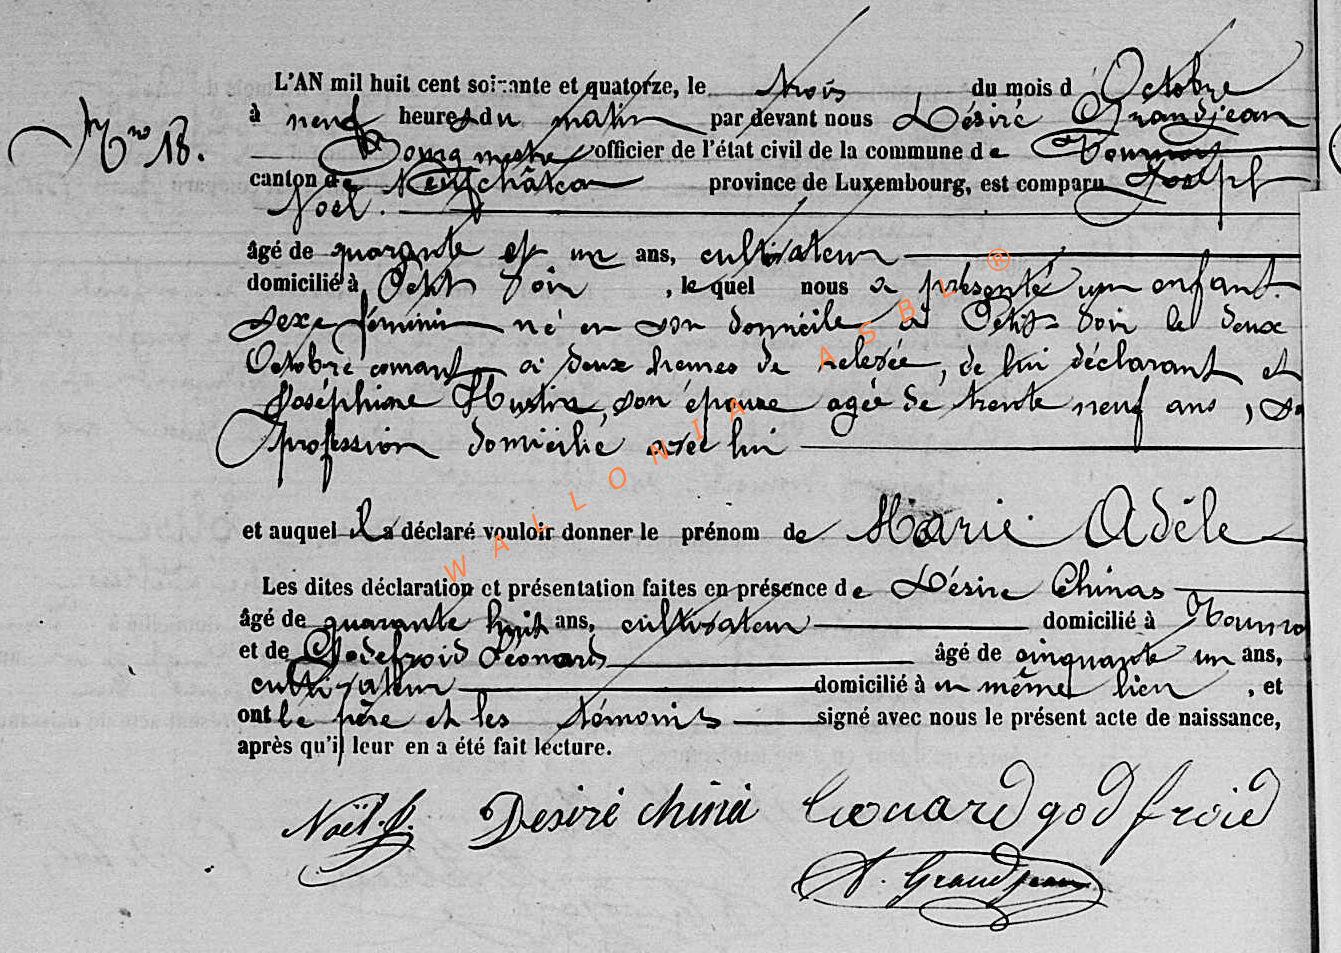 L'AN mil huit cent soixante et quatorze, le trois du mois d'Octobre
Nno 18.
à neuf heures du matin par devant nous Désiré Grandjean
Bourgmestre officier de l'état civil de la commune de Tournay
canton de Neufchâteau province de Luxembourg, est comparu Joseph
Noël.
âgé de quarante et un ans, cultivateur
domicilié à Petit Voir, lequel nous a présenté un enfant
sexe féminin né en son domicile à Petit Voir le deux
Octobre courant à deux heures de relevée, de lui déclarant et
Joséphine Hustin, son épouse agée de trente neuf ans, sa
profession domicilié avec lui
et auquel il a déclaré vouloir donner le prénom de Marie Adèle
Les dites déclaration et présentation faites en présence de Désiré Chinas
âgé de quarante huit ans, cultivateur domicilié à Tourna
et de Godefroid Léonard âgé de cinquante un ans,
cultivateur domicilié à en même lieu, et
ont le père et les témoins signé avec nous le présent acte de naissance,
après qu'il leur en a été fait lecture.
Noël. J. Desiré chinà Léonard godfroid
D. Grandjean
WALLONIA ASBL ®